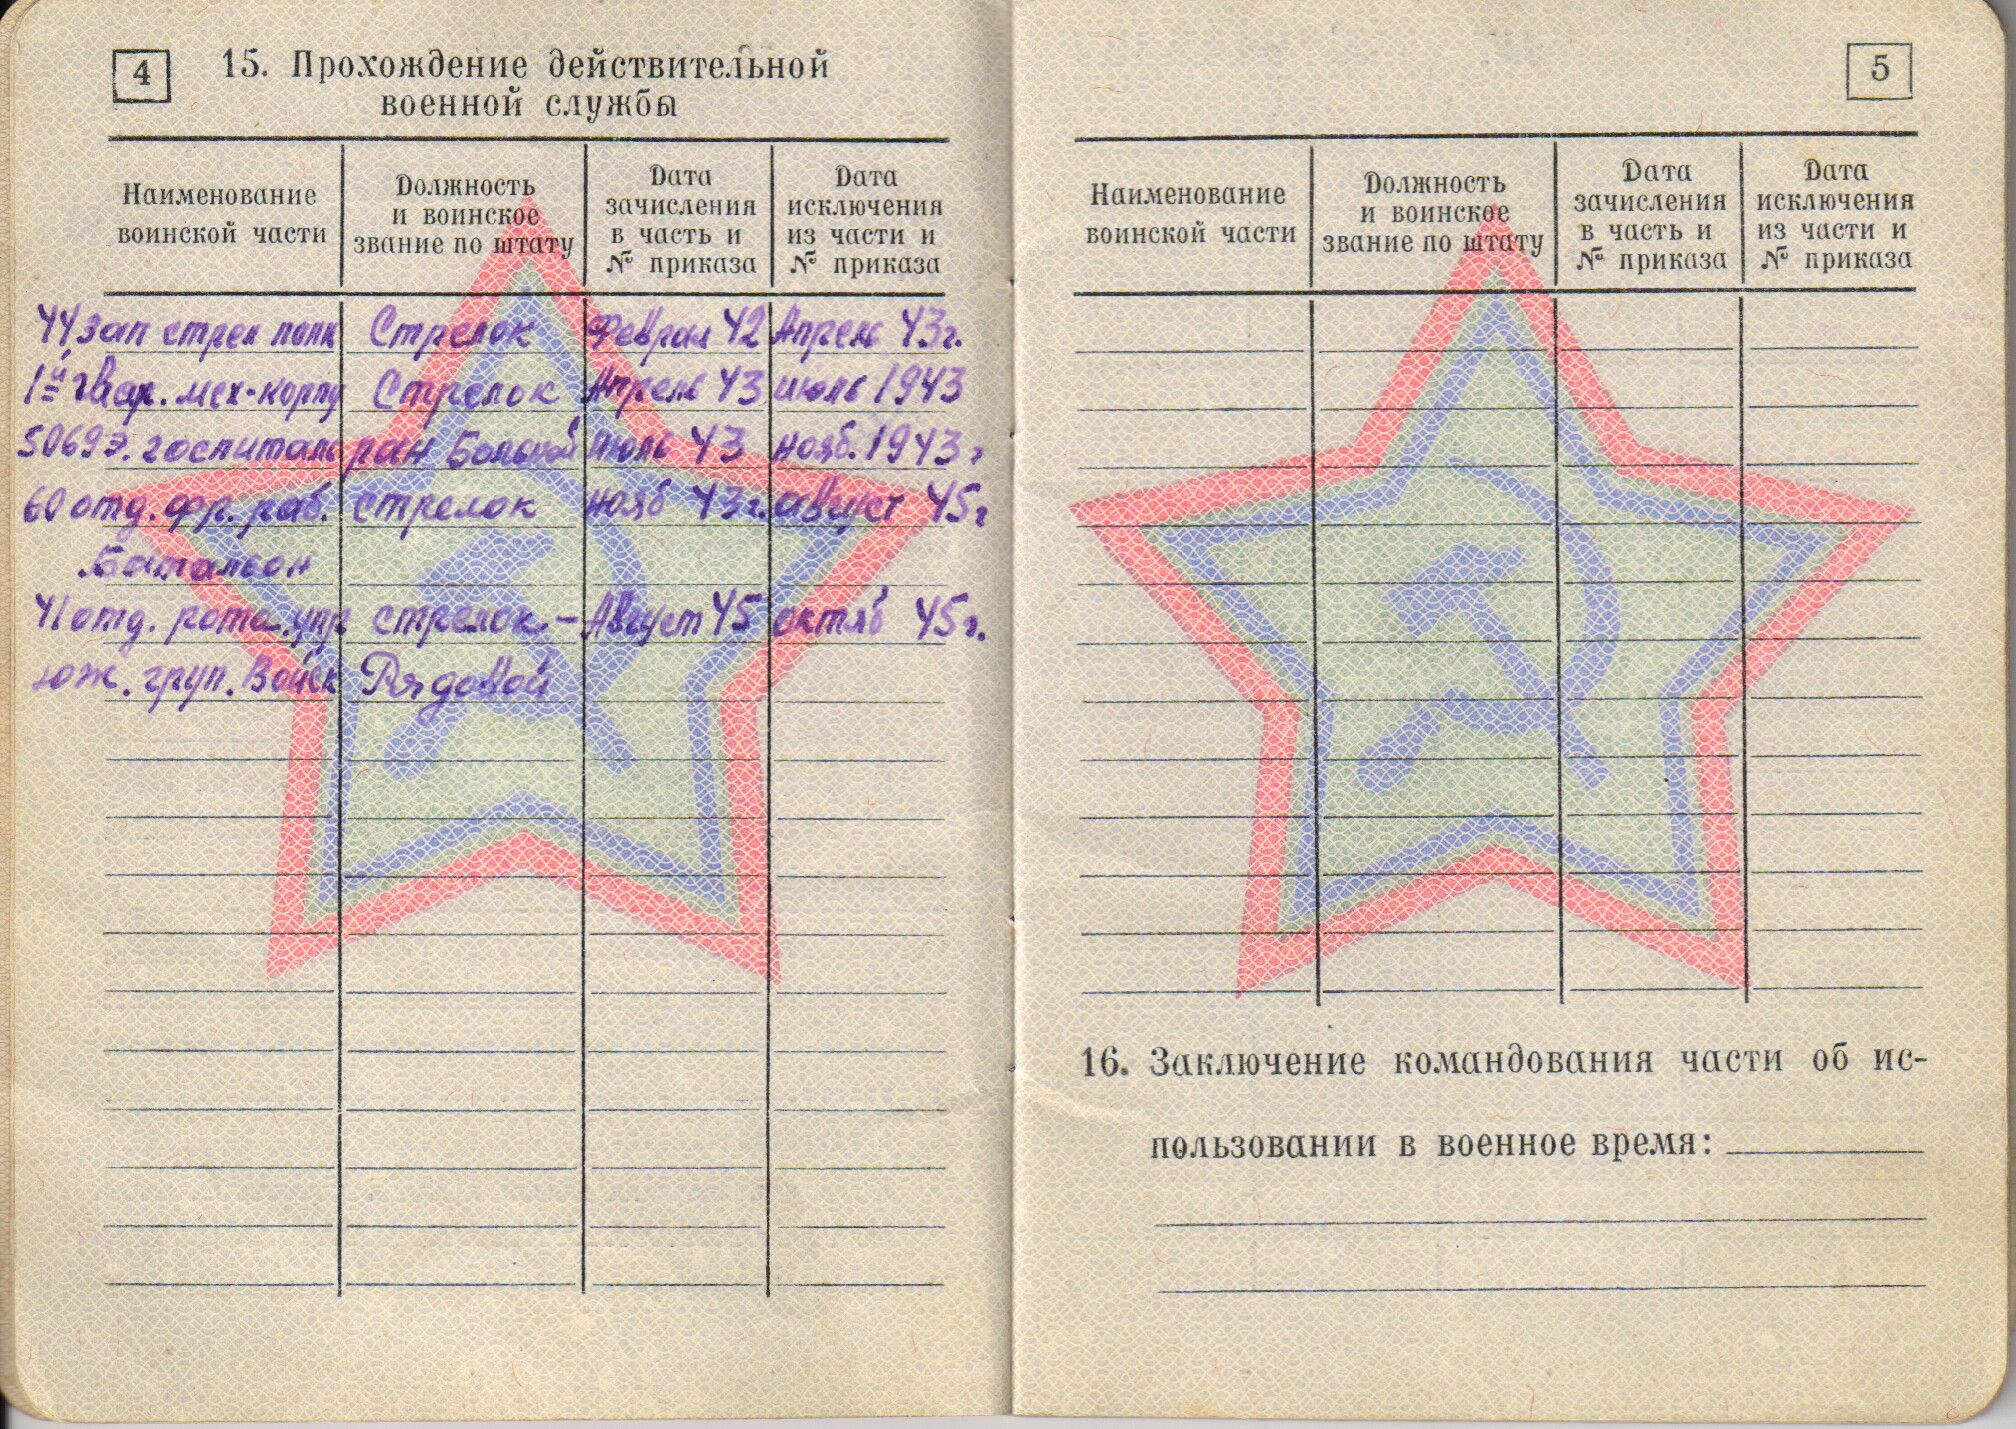 4
15. Прохождение действительной
военной службы
Наименование
воинской части
Должность
и воинское
звание по штату
Дата
зачисления
в часть и
№ приказа
Дата
исключения
из части и
№ приказа
44 зап стрел полк Стрелок Феврал 42 Апрель 43г.
1й гвар. мех-корпу Стрелок Апрель 43 июль 1943
5069 э. госпиталь ран Больной Июль 43 нояб. 1943 г
60 отд. фр. раб. стрелок нояб 43г. август 45г
Батальон
41 отд. рота упр стрелок - Август 45 октяб 45г.
юж. груп. Войск Рядовой
5
Наименование
воинской части
Должность
и воинское
звание по штату
Дата
зачисления
в часть и
№ приказа
Дата
исключения
из части и
№ приказа
16. Заключение командования части об ис-
пользовании в военное время: